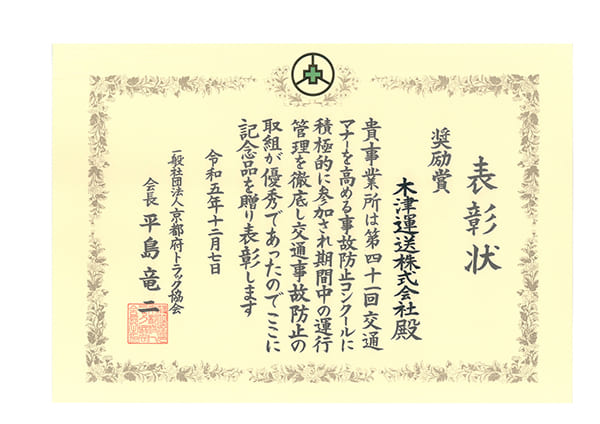 表彰状
奨励賞
木津運送株式会社殿
貴事業所は第四十一回交通
マナーを高める事故防止コンクールに
積極的に参加され期間中の運行
管理を徹底し交通事故防止の
取組が優秀であったのでここに
記念品を贈り表彰します
令和五年十二月七日
一般社団法人京都府トラック協会
会長 平島竜二